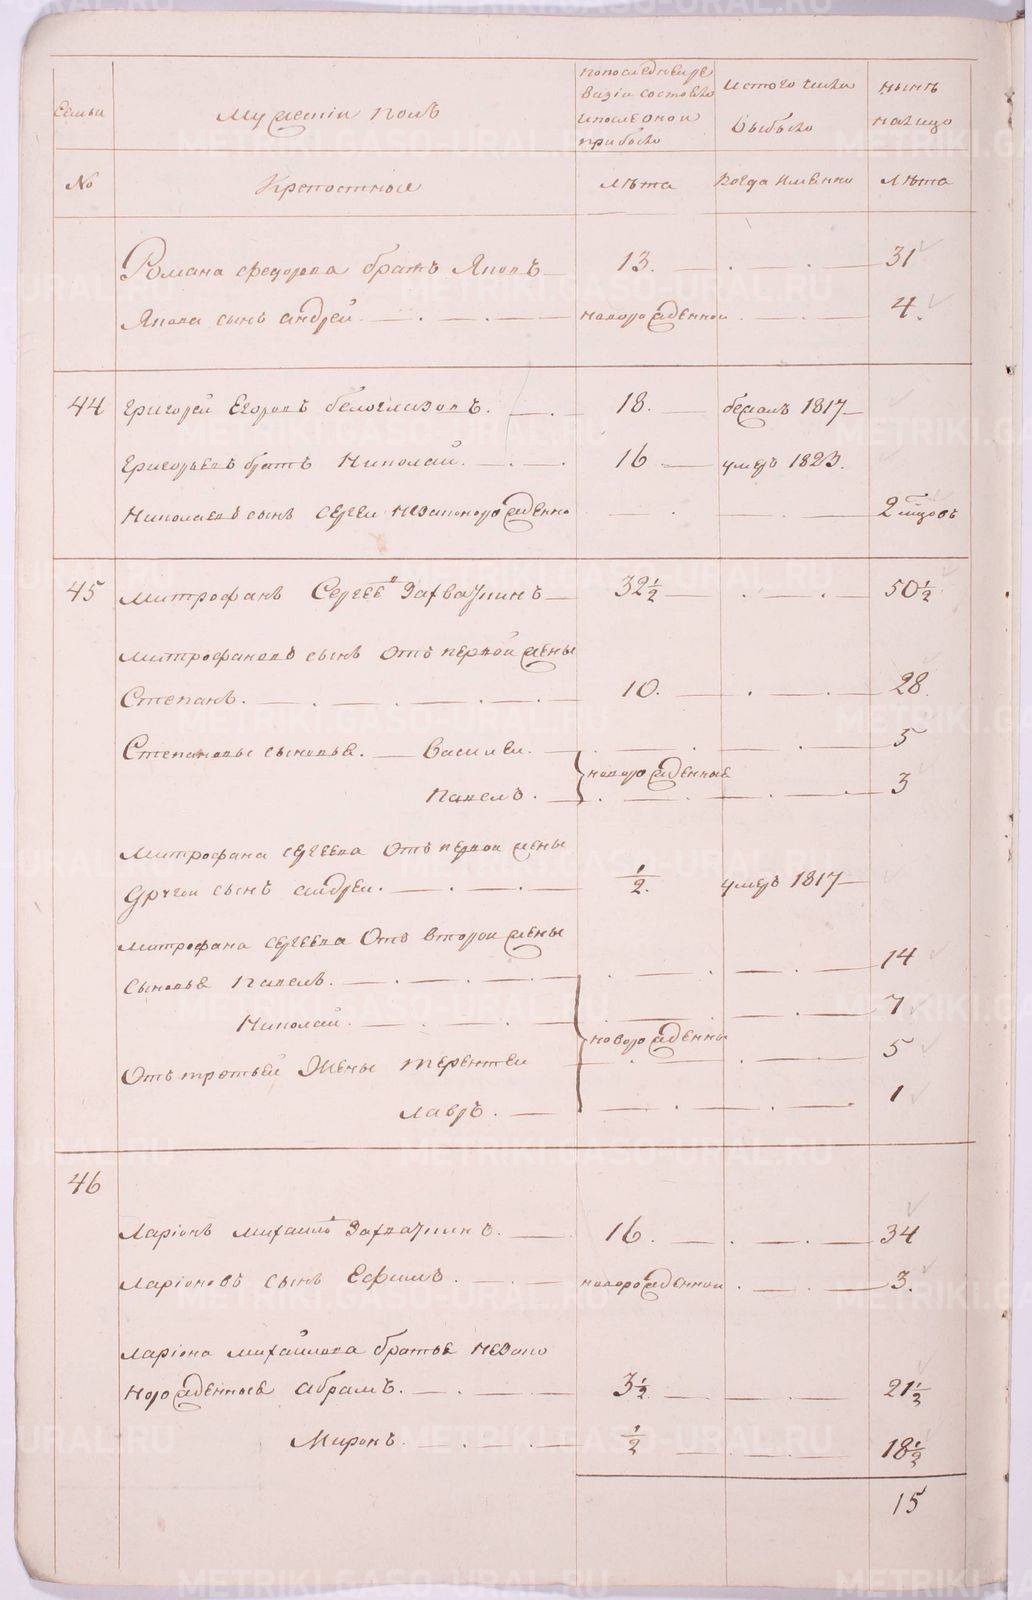 Семьи
Мужескiй полъ
по последней ре
визiи состояло
и после оной
прибыло
Изтого числа
выбыло
нынѣ
налицо
№
Крепостные
лѣта
когда именно
лѣта
Романа Федорова братъ Яковъ 13. 31
Якова сынъ андрей новорожденной 4.
44 григорей Егоровъ белоглазовъ. 18. бежалъ 1817
григорьевъ братъ Николай. 16 умеръ 1823.
Николаевъ сынъ сергеи незаконорожденно 2
45 Митрофанъ Сергеевъ Захваткинъ 32½ 50½
Митрофановъ сынъ отъ первой жены
Степанъ. 10. 28.
Степановы сыновья. Василеи. 5
новорожденные
Павелъ. 3
Митрофана сергеева отъ первои жены
другои сынъ андреи. ½. умеръ 1817
Митрофана сергеева отъ второи жены
сыновья Павелъ. 14
Николай. 7
новорожденны
отъ третьей жены терентеи 5
лавръ. 1
46
Ларiонъ михаило Захваткинъ. 16. 34
Ларiоновъ сынъ Ефимъ. новорожденнои 3.
Ларiона михайлова братья незако
норожденные абрамъ. 3½ 21½
Миронъ. ½ 18½
15
METRIKI.GASO-URAL.RU